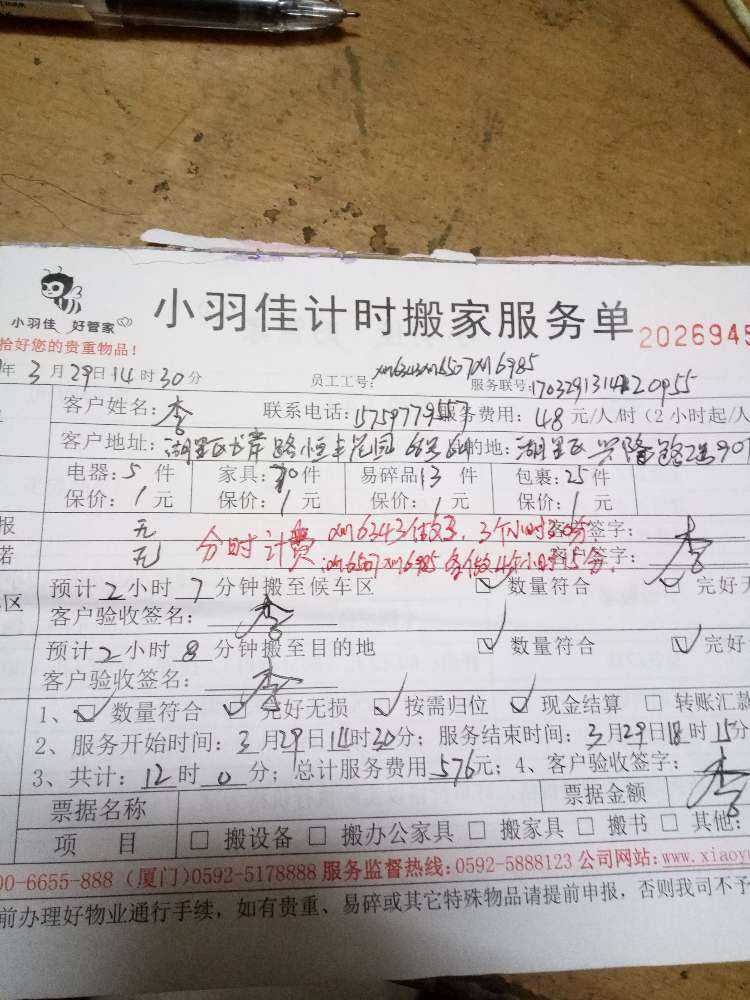 小羽佳 好管家
小羽佳计时搬家服务单 2026945
拾好您的贵重物品！
年 3 月 29 日 14 时 30 分 员工工号: xm6343xm6507xm6985 服务联号:
客户姓名: 李 联系电话: 服务费用: 48 元/人/时 (2 小时起/人
客户地址: 湖里区 路恒丰花园 的地: 湖里区 兴隆路
电器: 5 件 家具: 件 易碎品 13 件 包裹: 25 件
保价: 1 元 保价: 1 元 保价: 1 元 保价: 1 元
报 无 客户签字: 李
分时计费 xm6343做了3个小时30分.
诺 无 客户签字: 李
xm6507xm6985各做4个小时15分.
区 预计 2 小时 7 分钟搬至候车区 数量符合 完好无
客户验收签名: 李
预计 2 小时 8 分钟搬至目的地 数量符合 完好
客户验收签名: 李
1、 数量符合 完好无损 按需归位 现金结算 转账汇款
2、服务开始时间: 3 月 29 日 14 时 30 分; 服务结束时间: 3 月 29 日 18 时 15 分
3、共计: 12 时 0 分; 总计服务费用 576 元; 4、客户验收签字: 李
票据名称 票据金额
项 目 搬设备 搬办公家具 搬家具 搬书 其他:
00-6655-888 (厦门)0592-5178888 服务监督热线:0592-5888123 公司网站:www.xiaoyu
前办理好物业通行手续，如有贵重、易碎或其它特殊物品请提前申报，否则我司不予